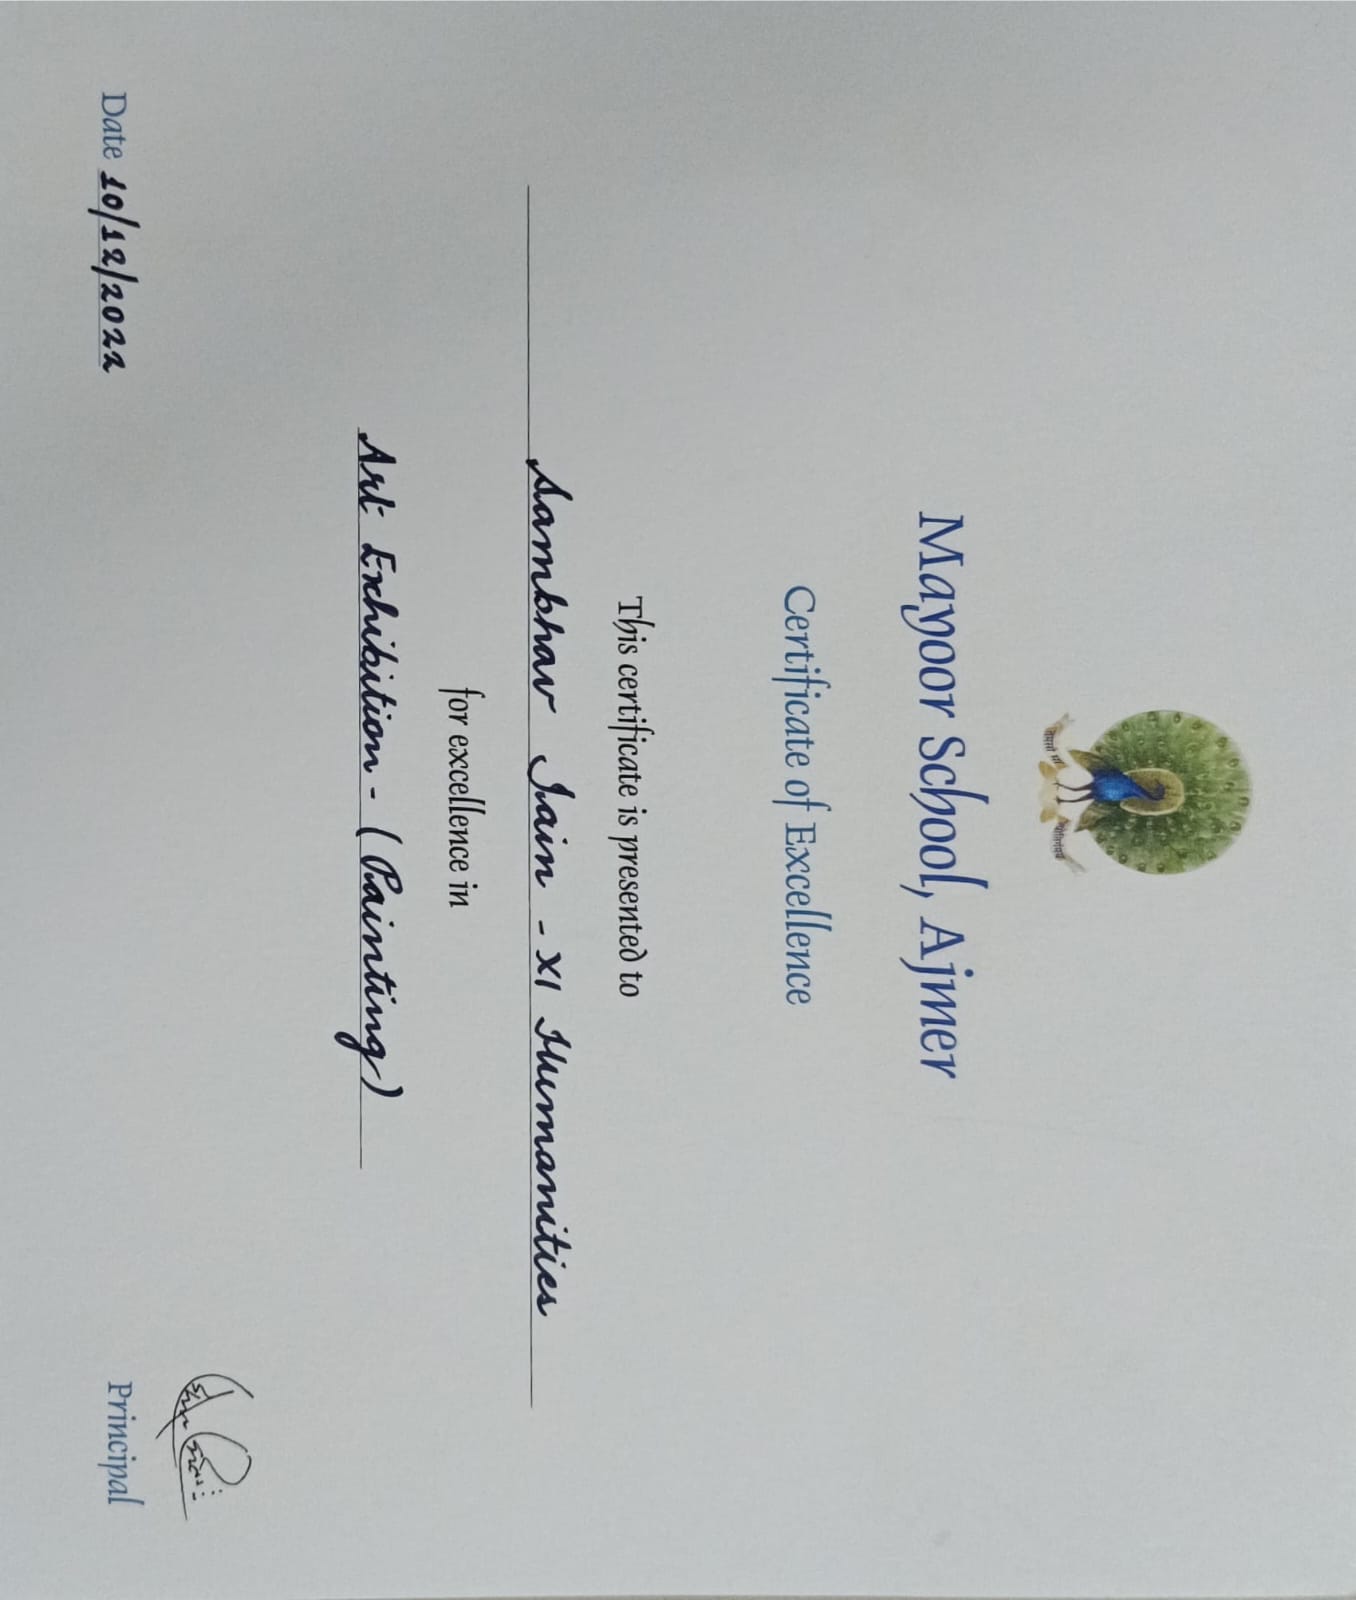 तमसो मा ज्योतिर्गमय
Mayoor School, Ajmer
Certificate of Excellence
This certificate is presented to
Sambhav Jain - XI Humanities
for excellence in
Art Exhibition - (Painting)
Date 10/12/2022
Principal